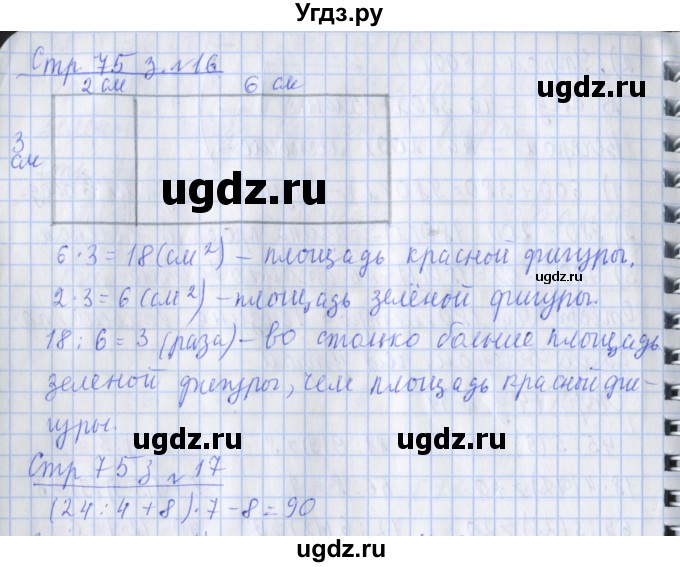 Угдз.ру
Стр 75 з. №16
2 см 6 см
ugdz.ru
3 см
ugdz.ru
ugdz.ru
6 · 3 = 18 (см²) – площадь красной фигуры.
ugdz.ru
2 · 3 = 6 (см²) – площадь зелёной фигуры.
18 : 6 = 3 (раза) – во столько больше площадь
зеленой фигуры, чем площадь красной фи-
гуры.
ugdz.ru
ugdz.ru
Стр 75 з №17
(24 : 4 + 8) · 7 – 8 = 90
ugdz.ru